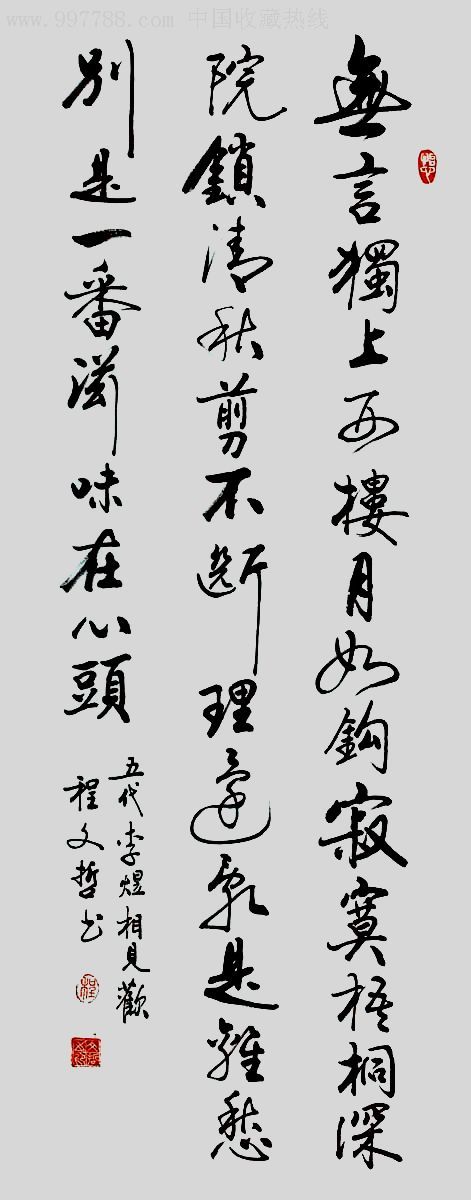 www.997788.com 中国收藏热线
無言獨上西樓月如鈎寂寞梧桐深
院鎖清秋剪不斷理還亂是離愁
別是一番滋味在心頭
五代李煜相見歡
程文哲书
程